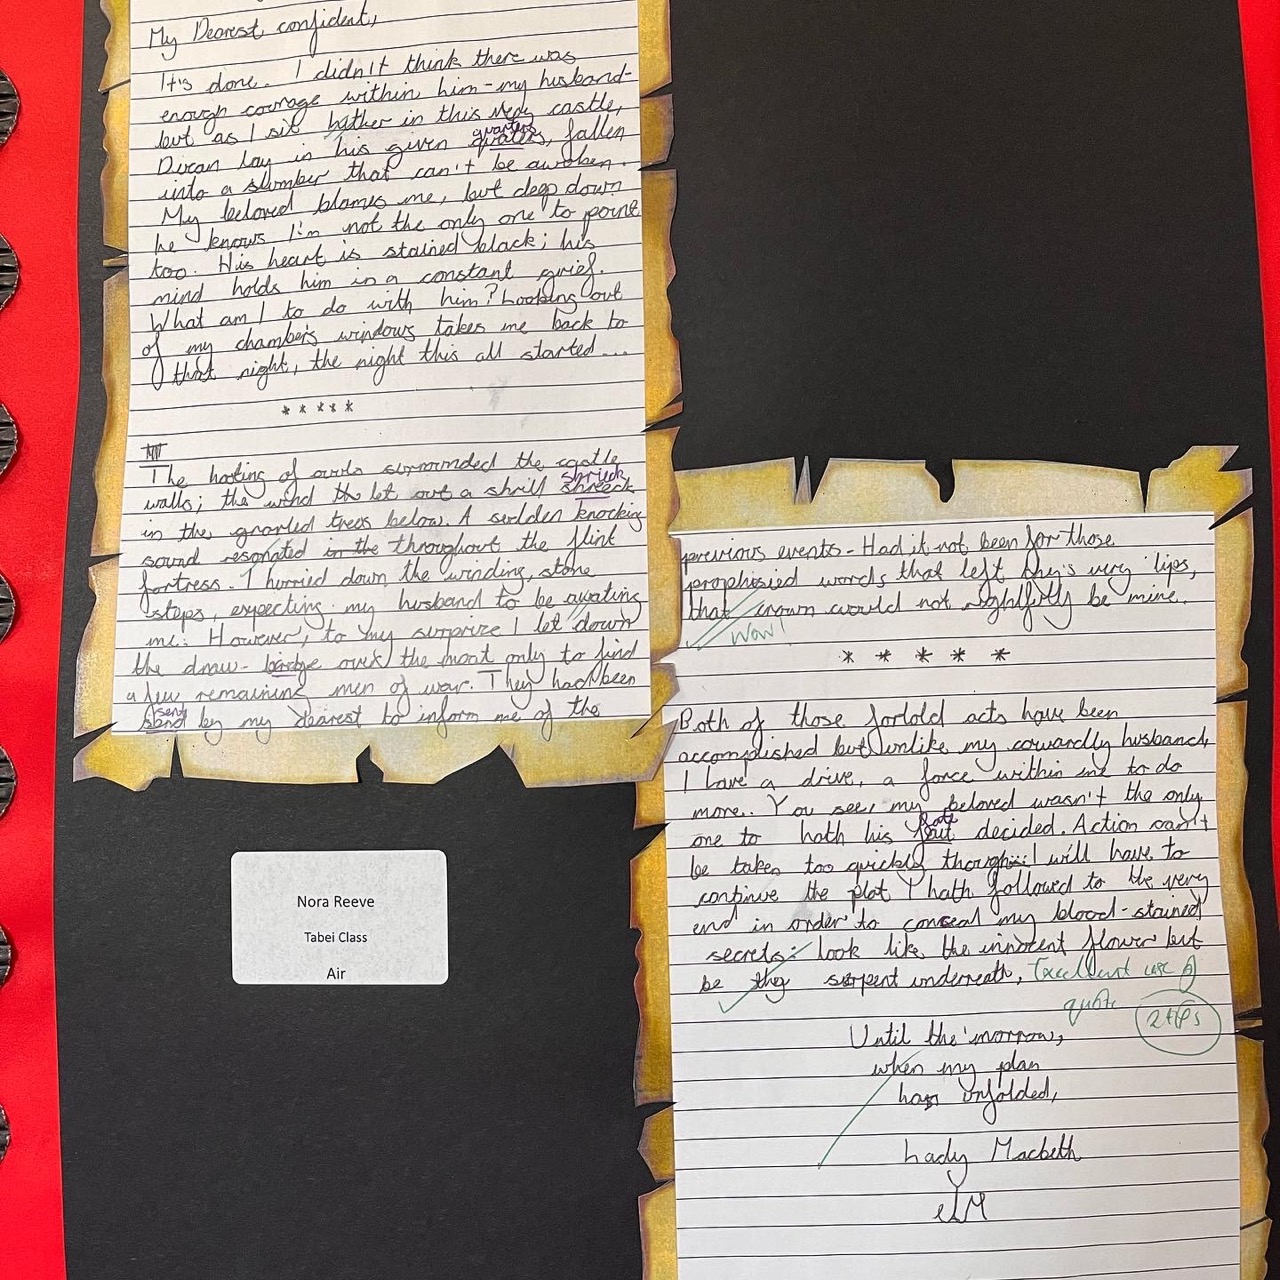 My Dearest confident,
It's done. I didn't think there was
enough courage within him - my husband -
but as I sit hither in this very castle,
Ducan lay in his given quarters, fallen
into a slumber that can't be awoken.
My beloved blames me, but deep down
he knows I'm not the only one to point
too. His heart is stained black; his
mind holds him in a constant grief.
What am I to do with him? Looking out
of my chambers windows takes me back to
that night, the night this all started...
* * * * *
The hooting of owls surrounded the castle
shriek
walls; the wind let out a shrill shreeck
in the gnarled trees below. A sudden knocking
sound resonated in the throughout the flint
fortress. I hurried down the winding, stone
steps, expecting my husband to be awaiting
me. However, to my surprize I let down
the draw-bridge over the moat only to find
a few remaining men of war. They had been
sent
send by my dearest to inform me of the
Nora Reeve
Tabei Class
Air
previous events - Had it not been for those
prophisied words that left thy's very lips,
that crown would not rightfully be mine.
Wow!
* * * * *
Both of those fortold acts have been
accomplished but unlike my cowardly husband,
I have a drive, a force within me to do
more. You see, my beloved wasn't the only
fate
one to hath his decided. Action can't
be taken too quickly though: I will have to
continue the plot I hath followed to the very
end in order to conseal my blood-stained
secrets: look like the innocent flower but
be the serpent underneath. Excellent use of
quote 2HPs
Until the morrow,
when my plan
has unfolded,
Lady Macbeth
LM